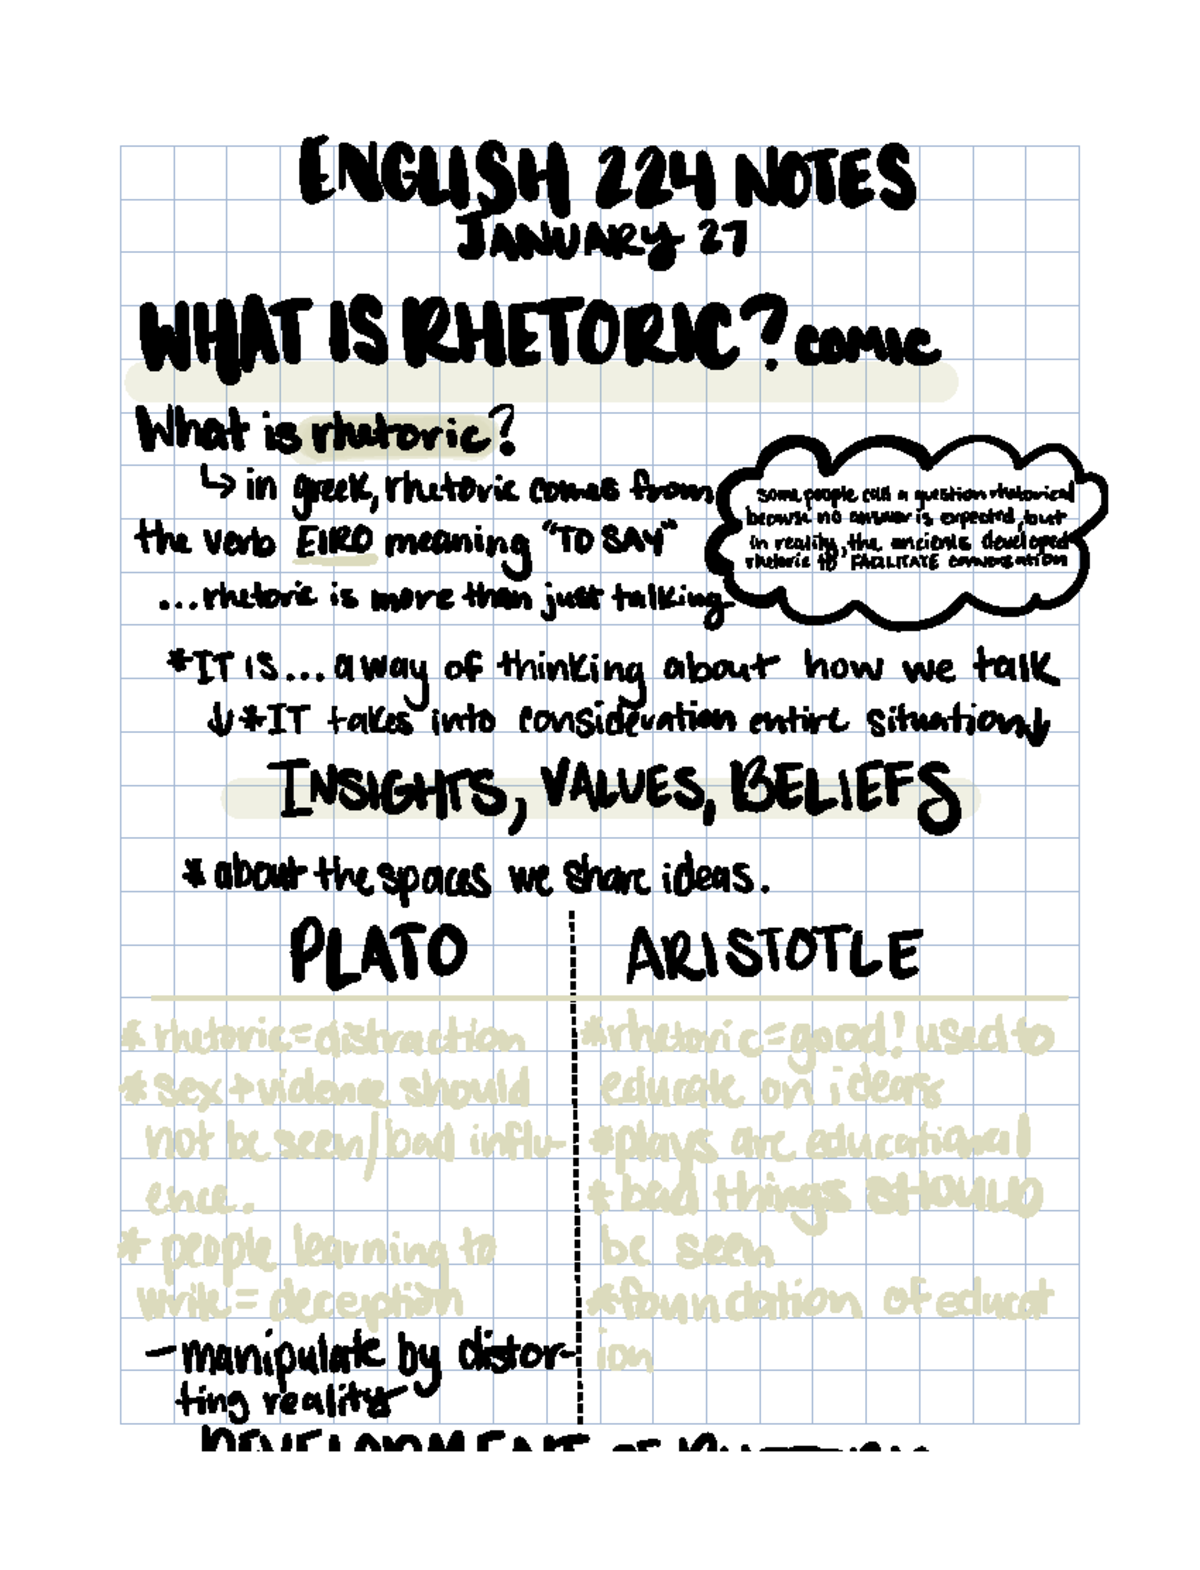 ENGLISH 224 NOTES
JANUARY 27
WHAT IS RHETORIC? comic
What is rhetoric?
↳ in greek, rhetoric comes from
the verb EIRO meaning "TO SAY"
...rhetoric is more than just talking
some people call a question rhetorical
because no answer is expected, but
in reality, the ancients developed
rhetoric to FACILITATE conversation
*IT IS... a way of thinking about how we talk
↓*IT takes into consideration entire situation↓
INSIGHTS, VALUES, BELIEFS
* about the spaces we share ideas.
PLATO
* rhetoric = distraction
* sex + violence should
not be seen/bad influ-
ence.
* people learning to
write = deception
- manipulate by distor-
ting reality
ARISTOTLE
*rhetoric = good! used to
educate on ideas
*plays are educational
* bad things SHOULD
be seen
*foundation of educat
ion
DEVELOPMENT OF